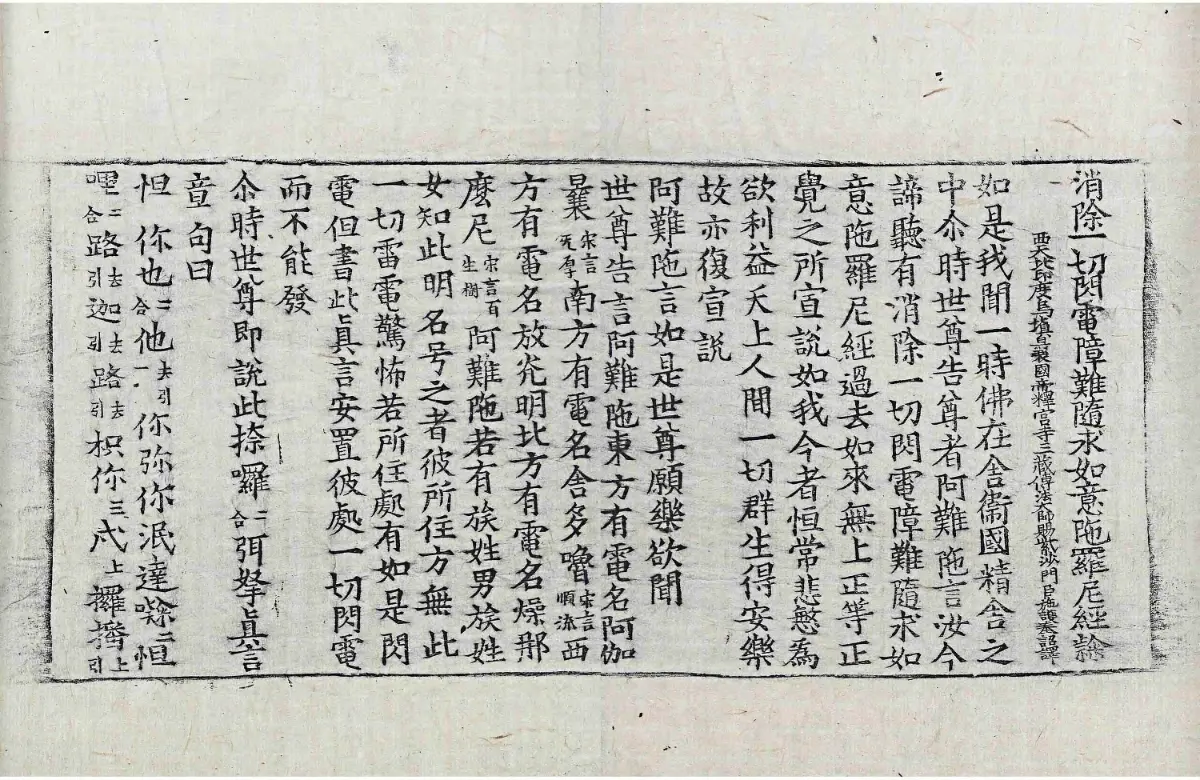 消除一切閃電障難隨求如意陁羅尼經 論
西天北印度烏塡曩國帝釋宮寺三藏傳法大師賜紫沙門臣施護奉詔譯
如是我聞一時佛在舍衞國精舎之
中尒時世尊告尊者阿難陁言汝今
諦聽有消除一切閃電障難隨求如
意陁羅尼經過去如來無上正等正
覺之所宣說如我今者恒常悲愍為
欲利益天上人間一切群生得安樂
故亦復宣說
阿難陁言如是世尊願樂欲聞
世尊告言阿難陁東方有電名阿伽
曩宋言无厚南方有電名舎多嚕宋言順流西
方有電名放光明北方有電名燥那
麼尼宋言百生樹阿難陁若有族姓男族姓
女知此明名号之者彼所住方無此
一切雷電驚怖若所住處有如是閃
電但書此真言安置彼處一切閃電
而不能發
尒時世尊即說此捺囉二合弭拏真言
章句曰
怛你也二合他去引一你弥你泯達噤二恒
哩二合路去引迦去引路去引枳你三弍上攞擠上引